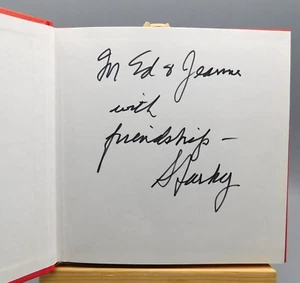 For Ed & Jeanne
with
friendship –
Sparky